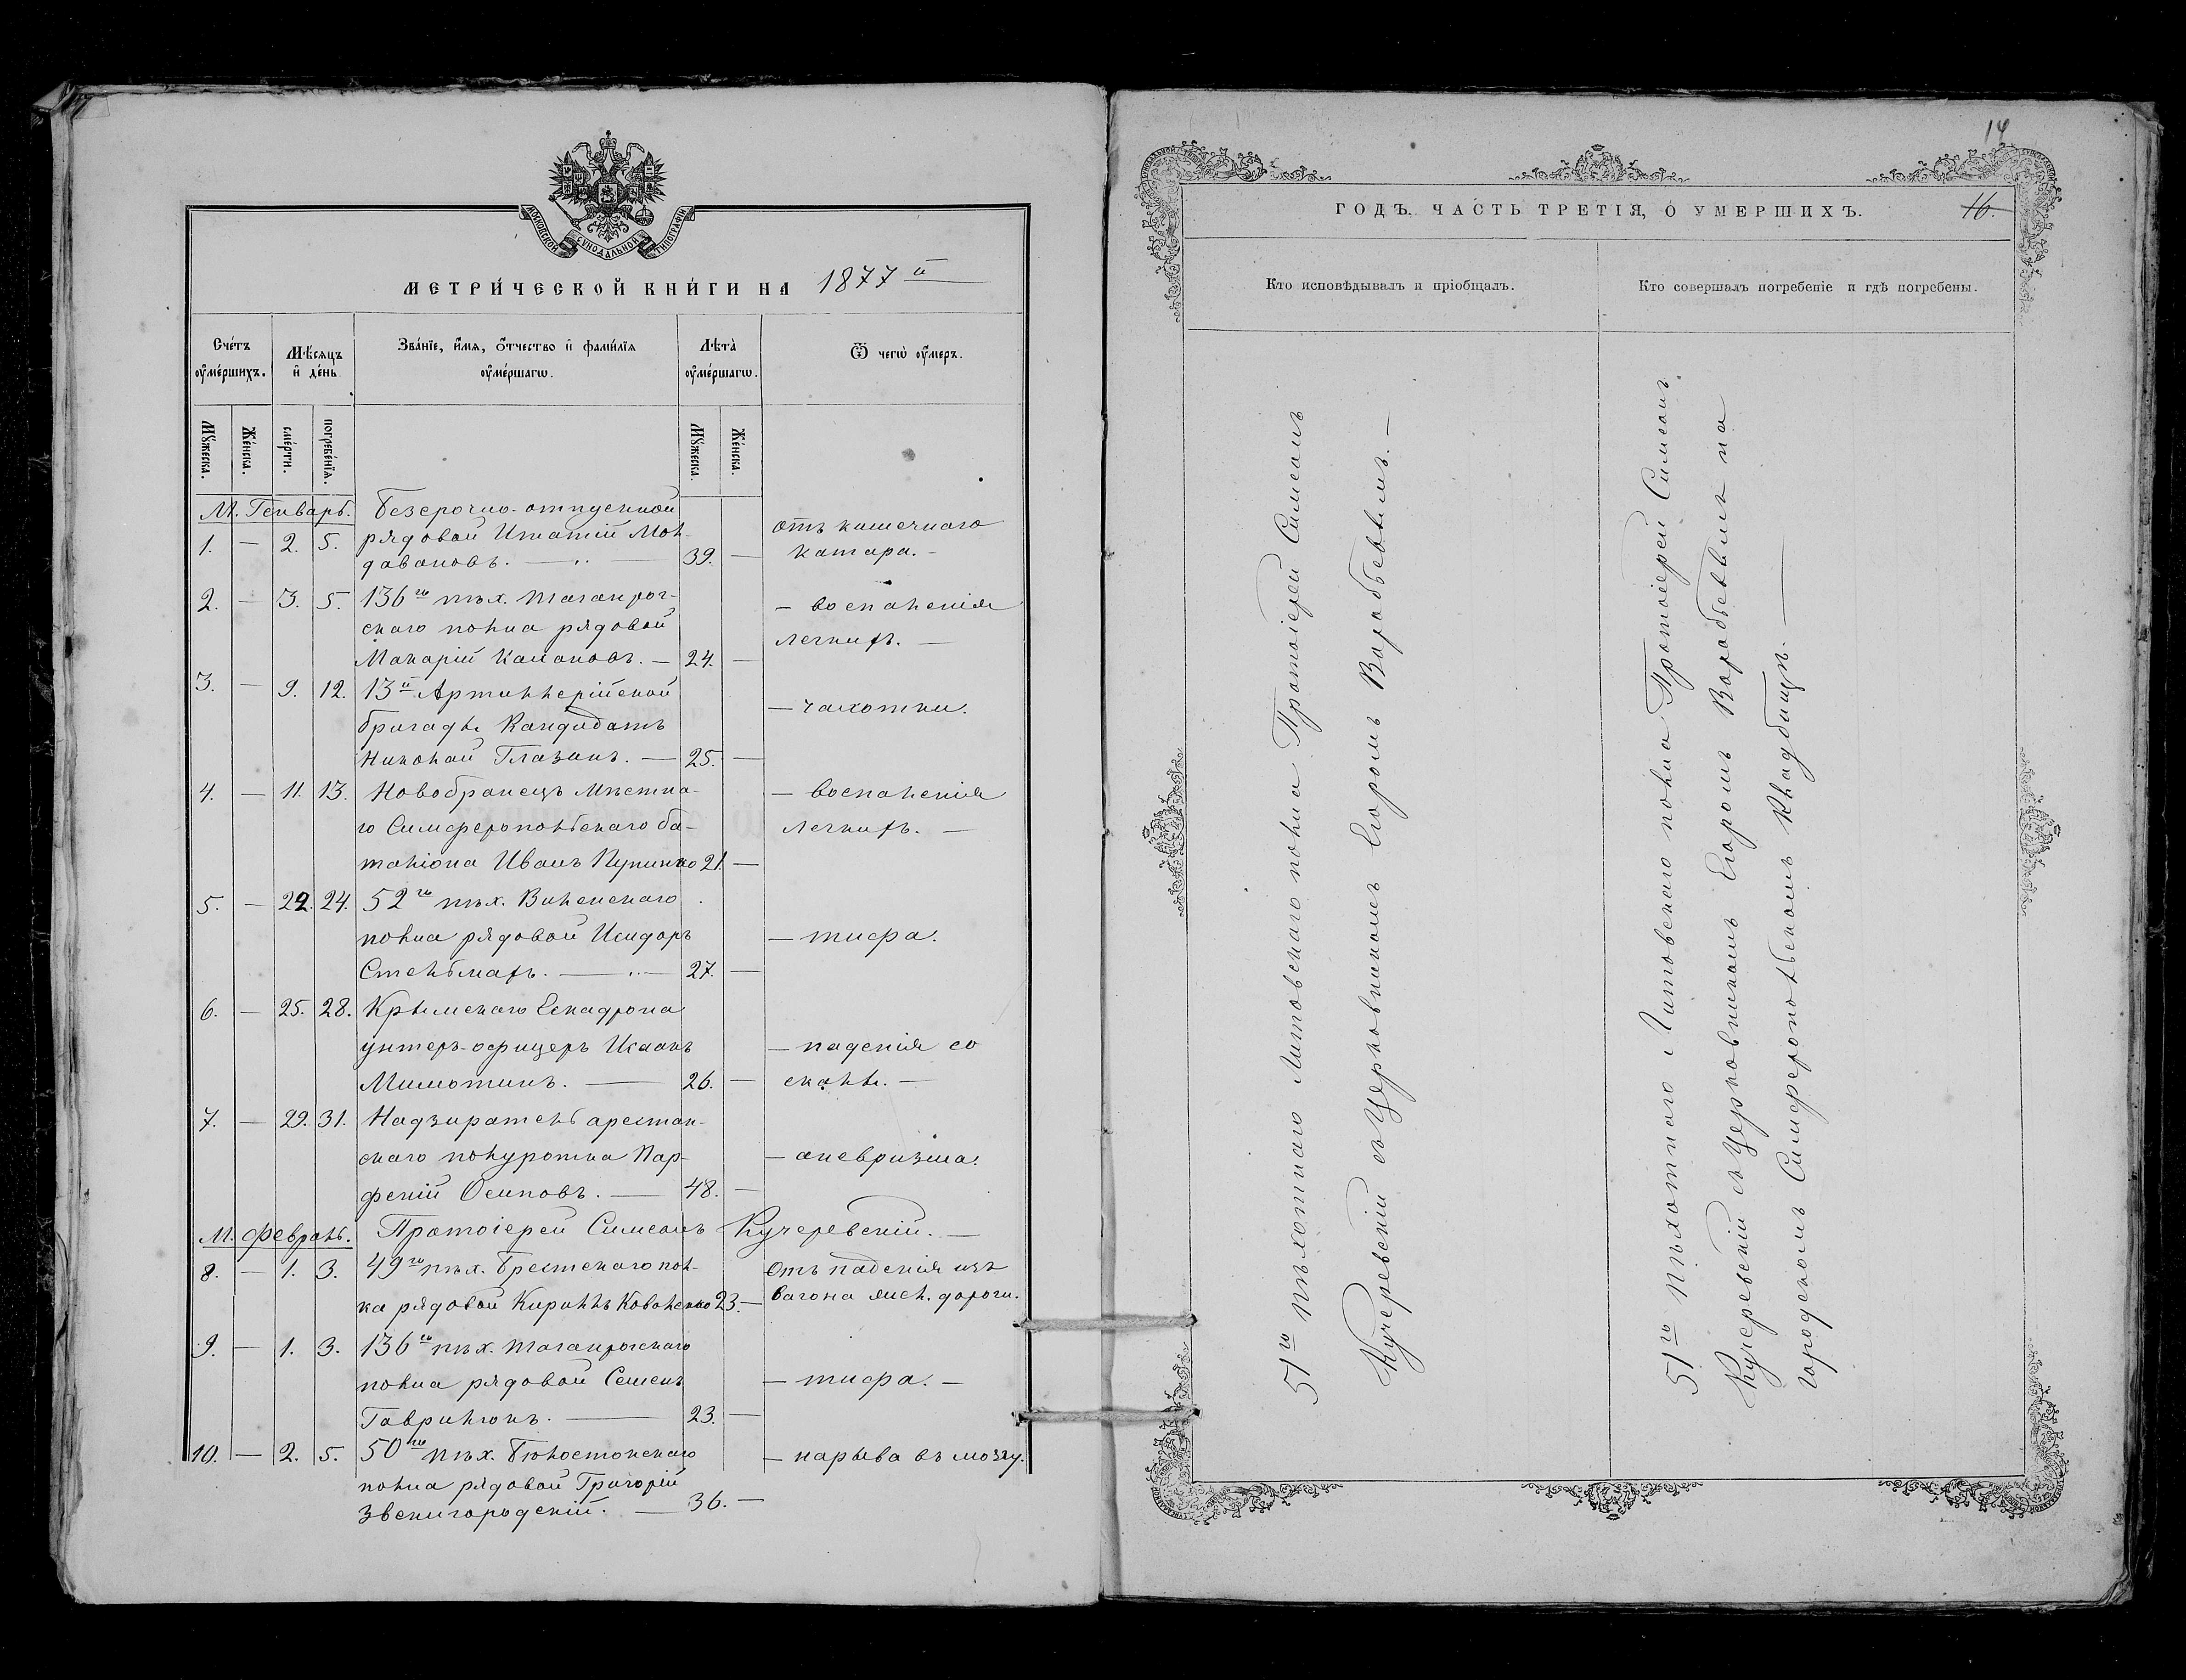 МОСКОВСКОЙ СУНОДАЛЬНОЙ ТИПОГРАФІИ
МЕТРИ́ЧЕСКОЙ КНИ́ГИ НА 1877 й
Сче́тъ оу҆ме́ршихъ.
Мѣ́сяцъ и҆ де́нь
Зва́нїе, и҆́мѧ, ѻ҆́тчество и҆ фами́лїѧ оу҆ме́ршагѡ.
Лѣта̀ оу҆ме́ршагѡ.
Ѿ чегѡ̀ оу҆́меръ.
Мꙋ́жеска.
Же́нска.
сме́рти.
погребе́нїѧ.
Мꙋ́жеска.
Же́нска.
М. Генварь. Безсрочно-отпускной
1. — 2. 5. рядовой Игнатій Мол-
давановъ. — 39. —
отъ кишечнаго
катара. —
2. — 3. 5. 136го пѣх. Таганрог-
скаго полка рядовой
Макарій — 24. —
— воспаленія
легкихъ. —
3. — 9. 12. 13й Артиллерійской
бригады Кандидатъ
Николай Глазинъ. — 25. —
— чахотки.
4. — 11. 13. Новобранецъ Мѣстна-
го Симферопольскаго ба-
таліона Иванъ 21. —
— воспаленія
легкихъ. —
5. — 22. 24. 52го пѣх. Виленскаго
полка рядовой Исидоръ
Стельмахъ. — 27. —
— тифа.
6. — 25. 28. Крымскаго Ескадрона
унтеръ-офицеръ Исаакъ
— 26. —
— паденія со
скалы. —
7. — 29. 31. Надзиратель арестан-
скаго полуротка Пар-
феній Осиповъ. — 48. —
— аневризма.
М. Февраль. Протоіерей Симеонъ Кучеревскій. —
8. — 1. 3. 49го пѣх. Брестскаго пол-
ка рядовой Кириллъ Коваленко 23. —
Отъ паденія изъ
вагона жел. дороги.
9. — 1. 3. 136го пѣх. Таганрогскаго
полка рядовой Семенъ
Гаврилюкъ. — 23. —
— тифа. —
10. — 2. 5. 50го пѣх. Бѣлостокскаго
полка рядовой Григорій
Звенигородскій. — 36. —
— нарыва въ мозгу.
14
ГОДЪ. ЧАСТЬ ТРЕТІЯ, О УМЕРШИХЪ. 16.
Кто исповѣдывалъ и пріобщалъ.
Кто совершалъ погребеніе и гдѣ погребены.
51го пѣхотнаго Литовскаго полка Протоіерей Симеонъ
Кучеревскій съ Церковникомъ Егоромъ Воробьевымъ. —
51го Пѣхотнаго Литовскаго полка Протоіерей Симеонъ
Кучеревскій съ Церковникомъ Егоромъ Воробьевымъ на
городскомъ Симферопольскомъ Кладбищѣ. —